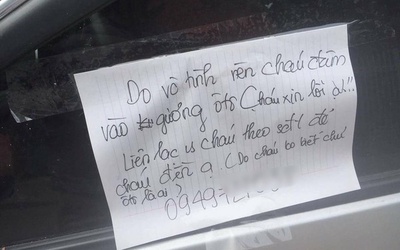 Do vô tình nên cháu đâm
vào gương ôtô (Cháu xin lỗi ạ!!
Liên lạc vs cháu theo sđt để
cháu đền ạ (Do cháu ko biết chủ
ôtô là ai)
0949